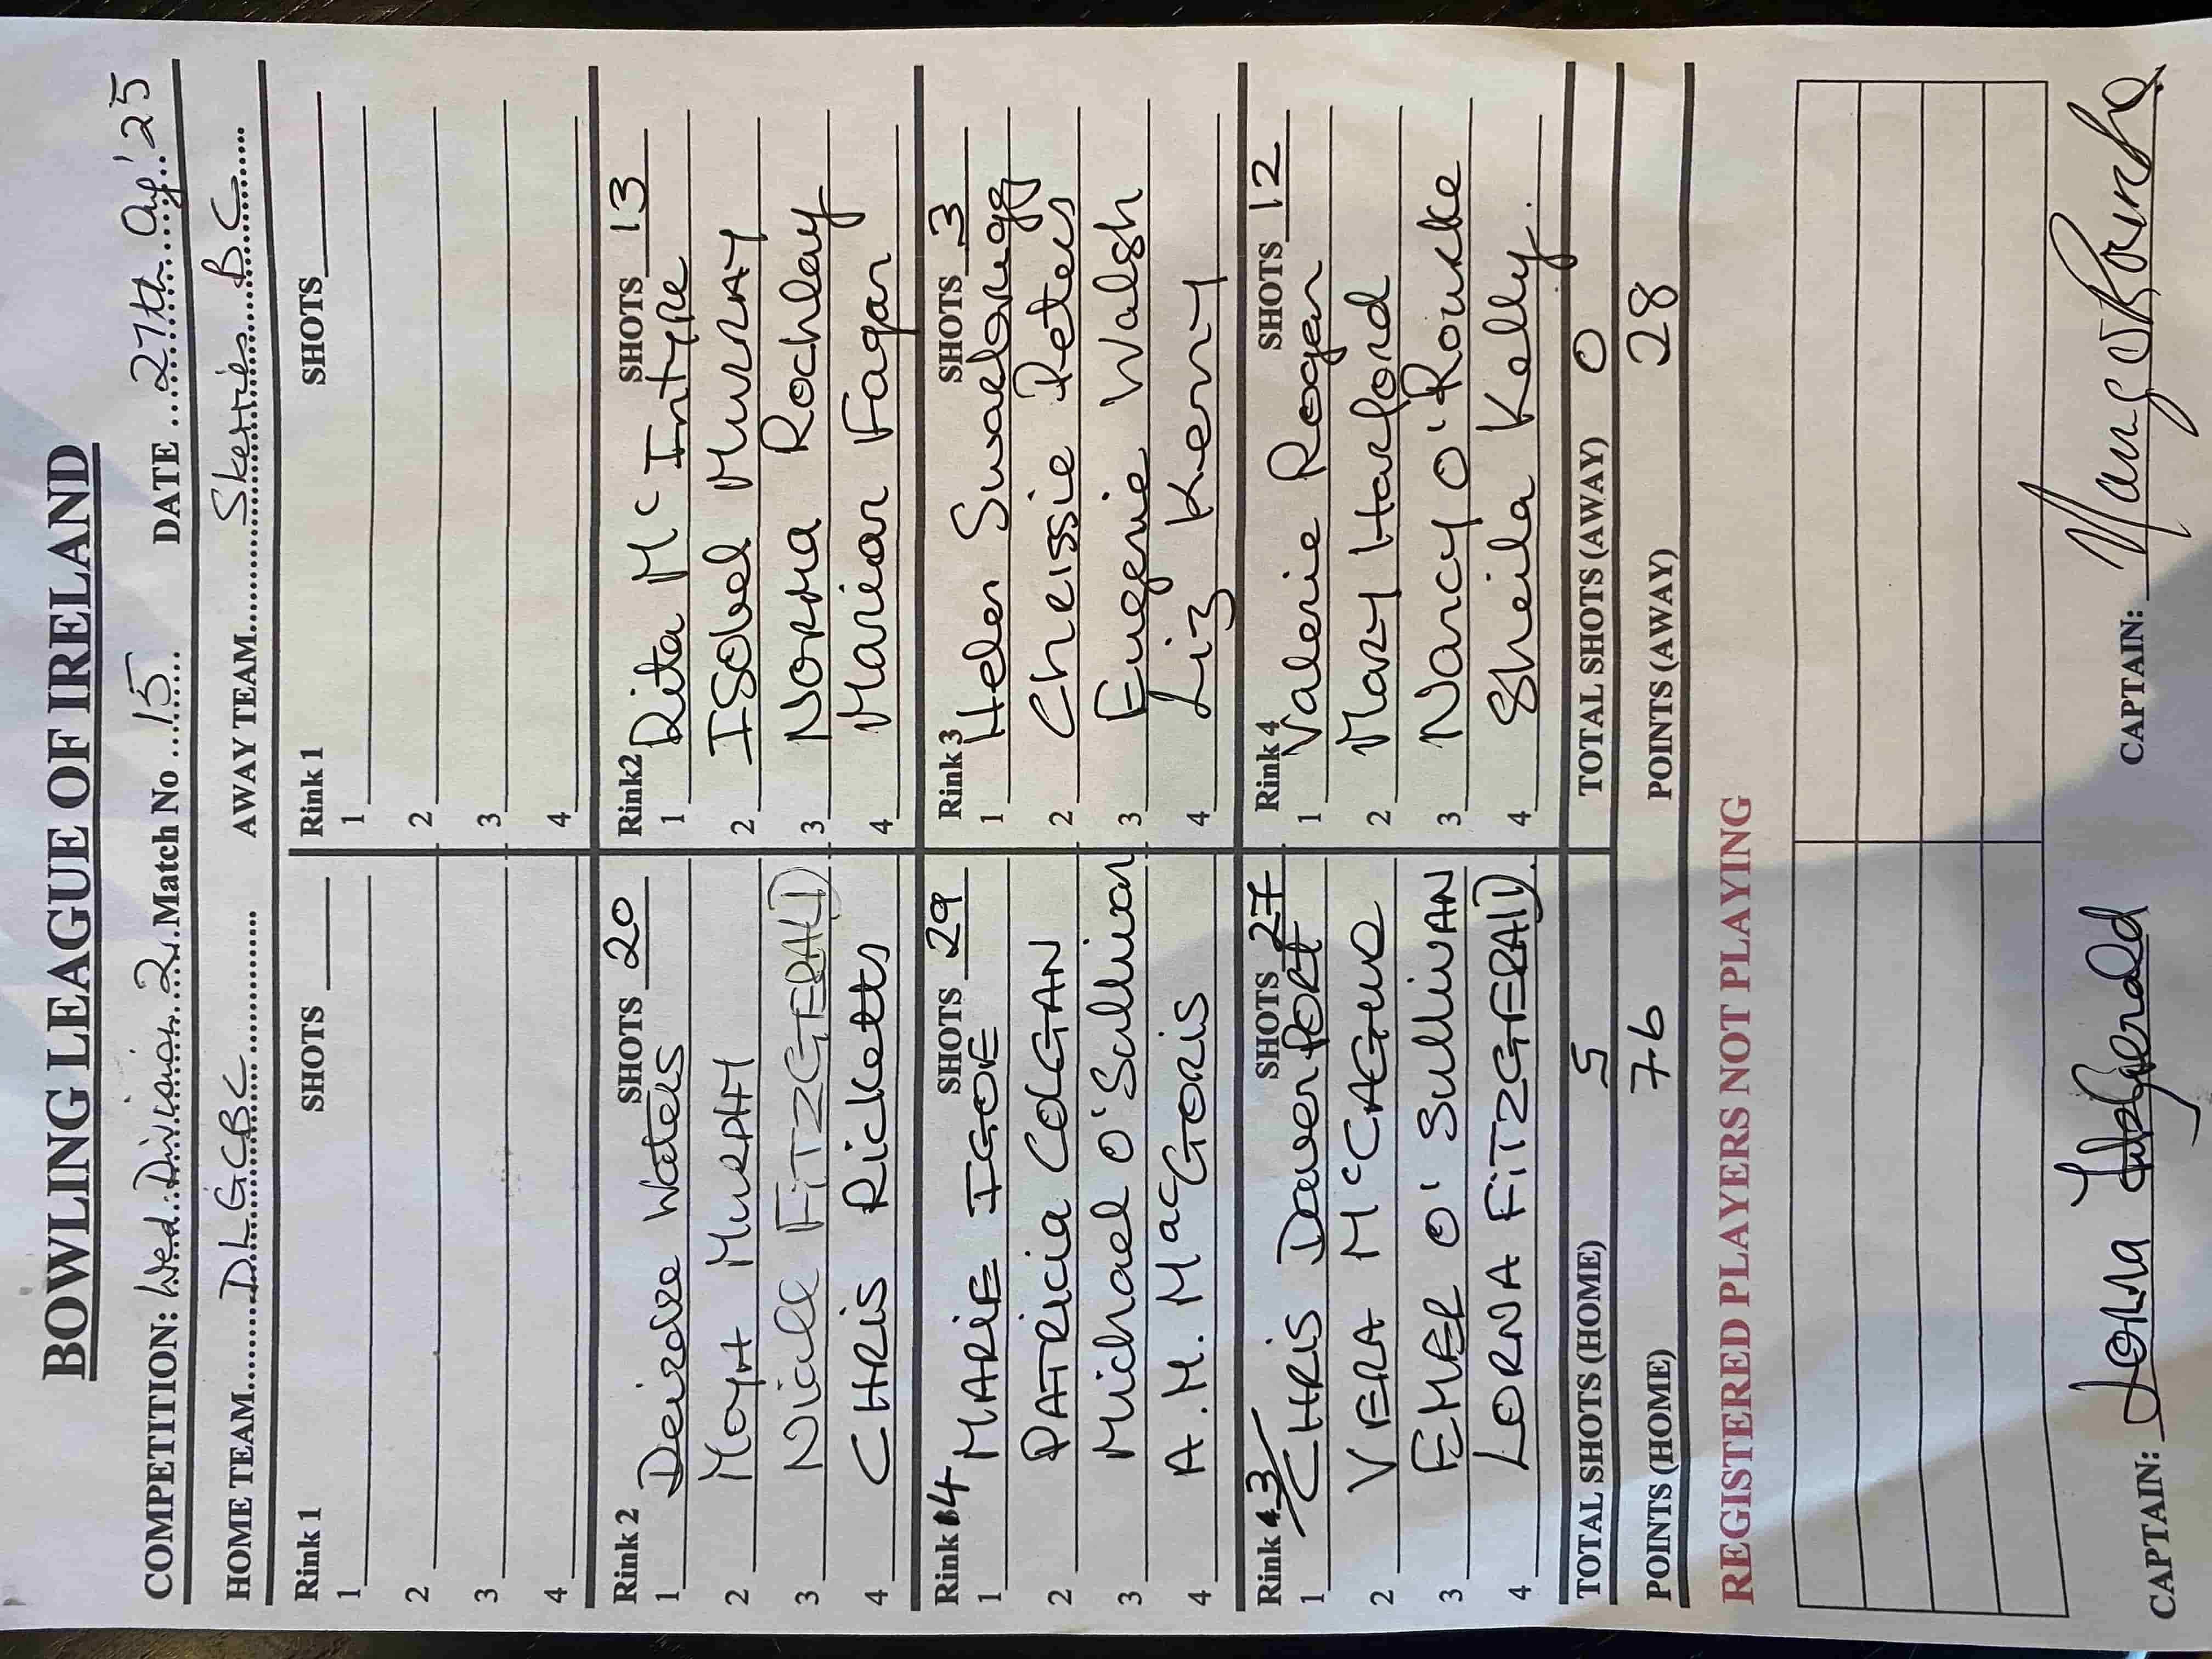 BOWLING LEAGUE OF IRELAND
COMPETITION: Wed. Division 2 Match No 15 DATE 27th Aug '25
HOME TEAM D.L.G.C.B.C AWAY TEAM Skerries B.C
Rink 1 SHOTS
1
2
3
4
Rink 2 SHOTS 20
1 Deirdre Waters
2 Moya MURPHY
3 Niall FITZGERALD
4 CHRIS Ricketts
Rink 4 SHOTS 29
1 MARIE IGOE
2 PATRICIA COLGAN
3 Michael O'Sullivan
4 A.M. MacGORIS
Rink 3 SHOTS 27
1 CHRIS DavenPORT
2 VERA McCAGUE
3 EMER O'SullivAN
4 LORNA FITZGERALD
TOTAL SHOTS (HOME) 5
POINTS (HOME) 76
Rink 1 SHOTS
1
2
3
4
Rink2 SHOTS 13
1 Rita Mc Intyre
2 Isobel Murray
3 Norma Rochlay
4 Marian Fagan
Rink 3 SHOTS 3
1 Helen
2 Chrissie Peters
3 Eugenie Walsh
4 Liz Kenny
Rink 4 SHOTS 12
1 Valerie Rogan
2 Mary Harford
3 Nancy O'Rourke
4 Sheila Kelly
TOTAL SHOTS (AWAY) 0
POINTS (AWAY) 28
REGISTERED PLAYERS NOT PLAYING
CAPTAIN: Lorna Fitzgerald CAPTAIN: Nancy O'Rourke